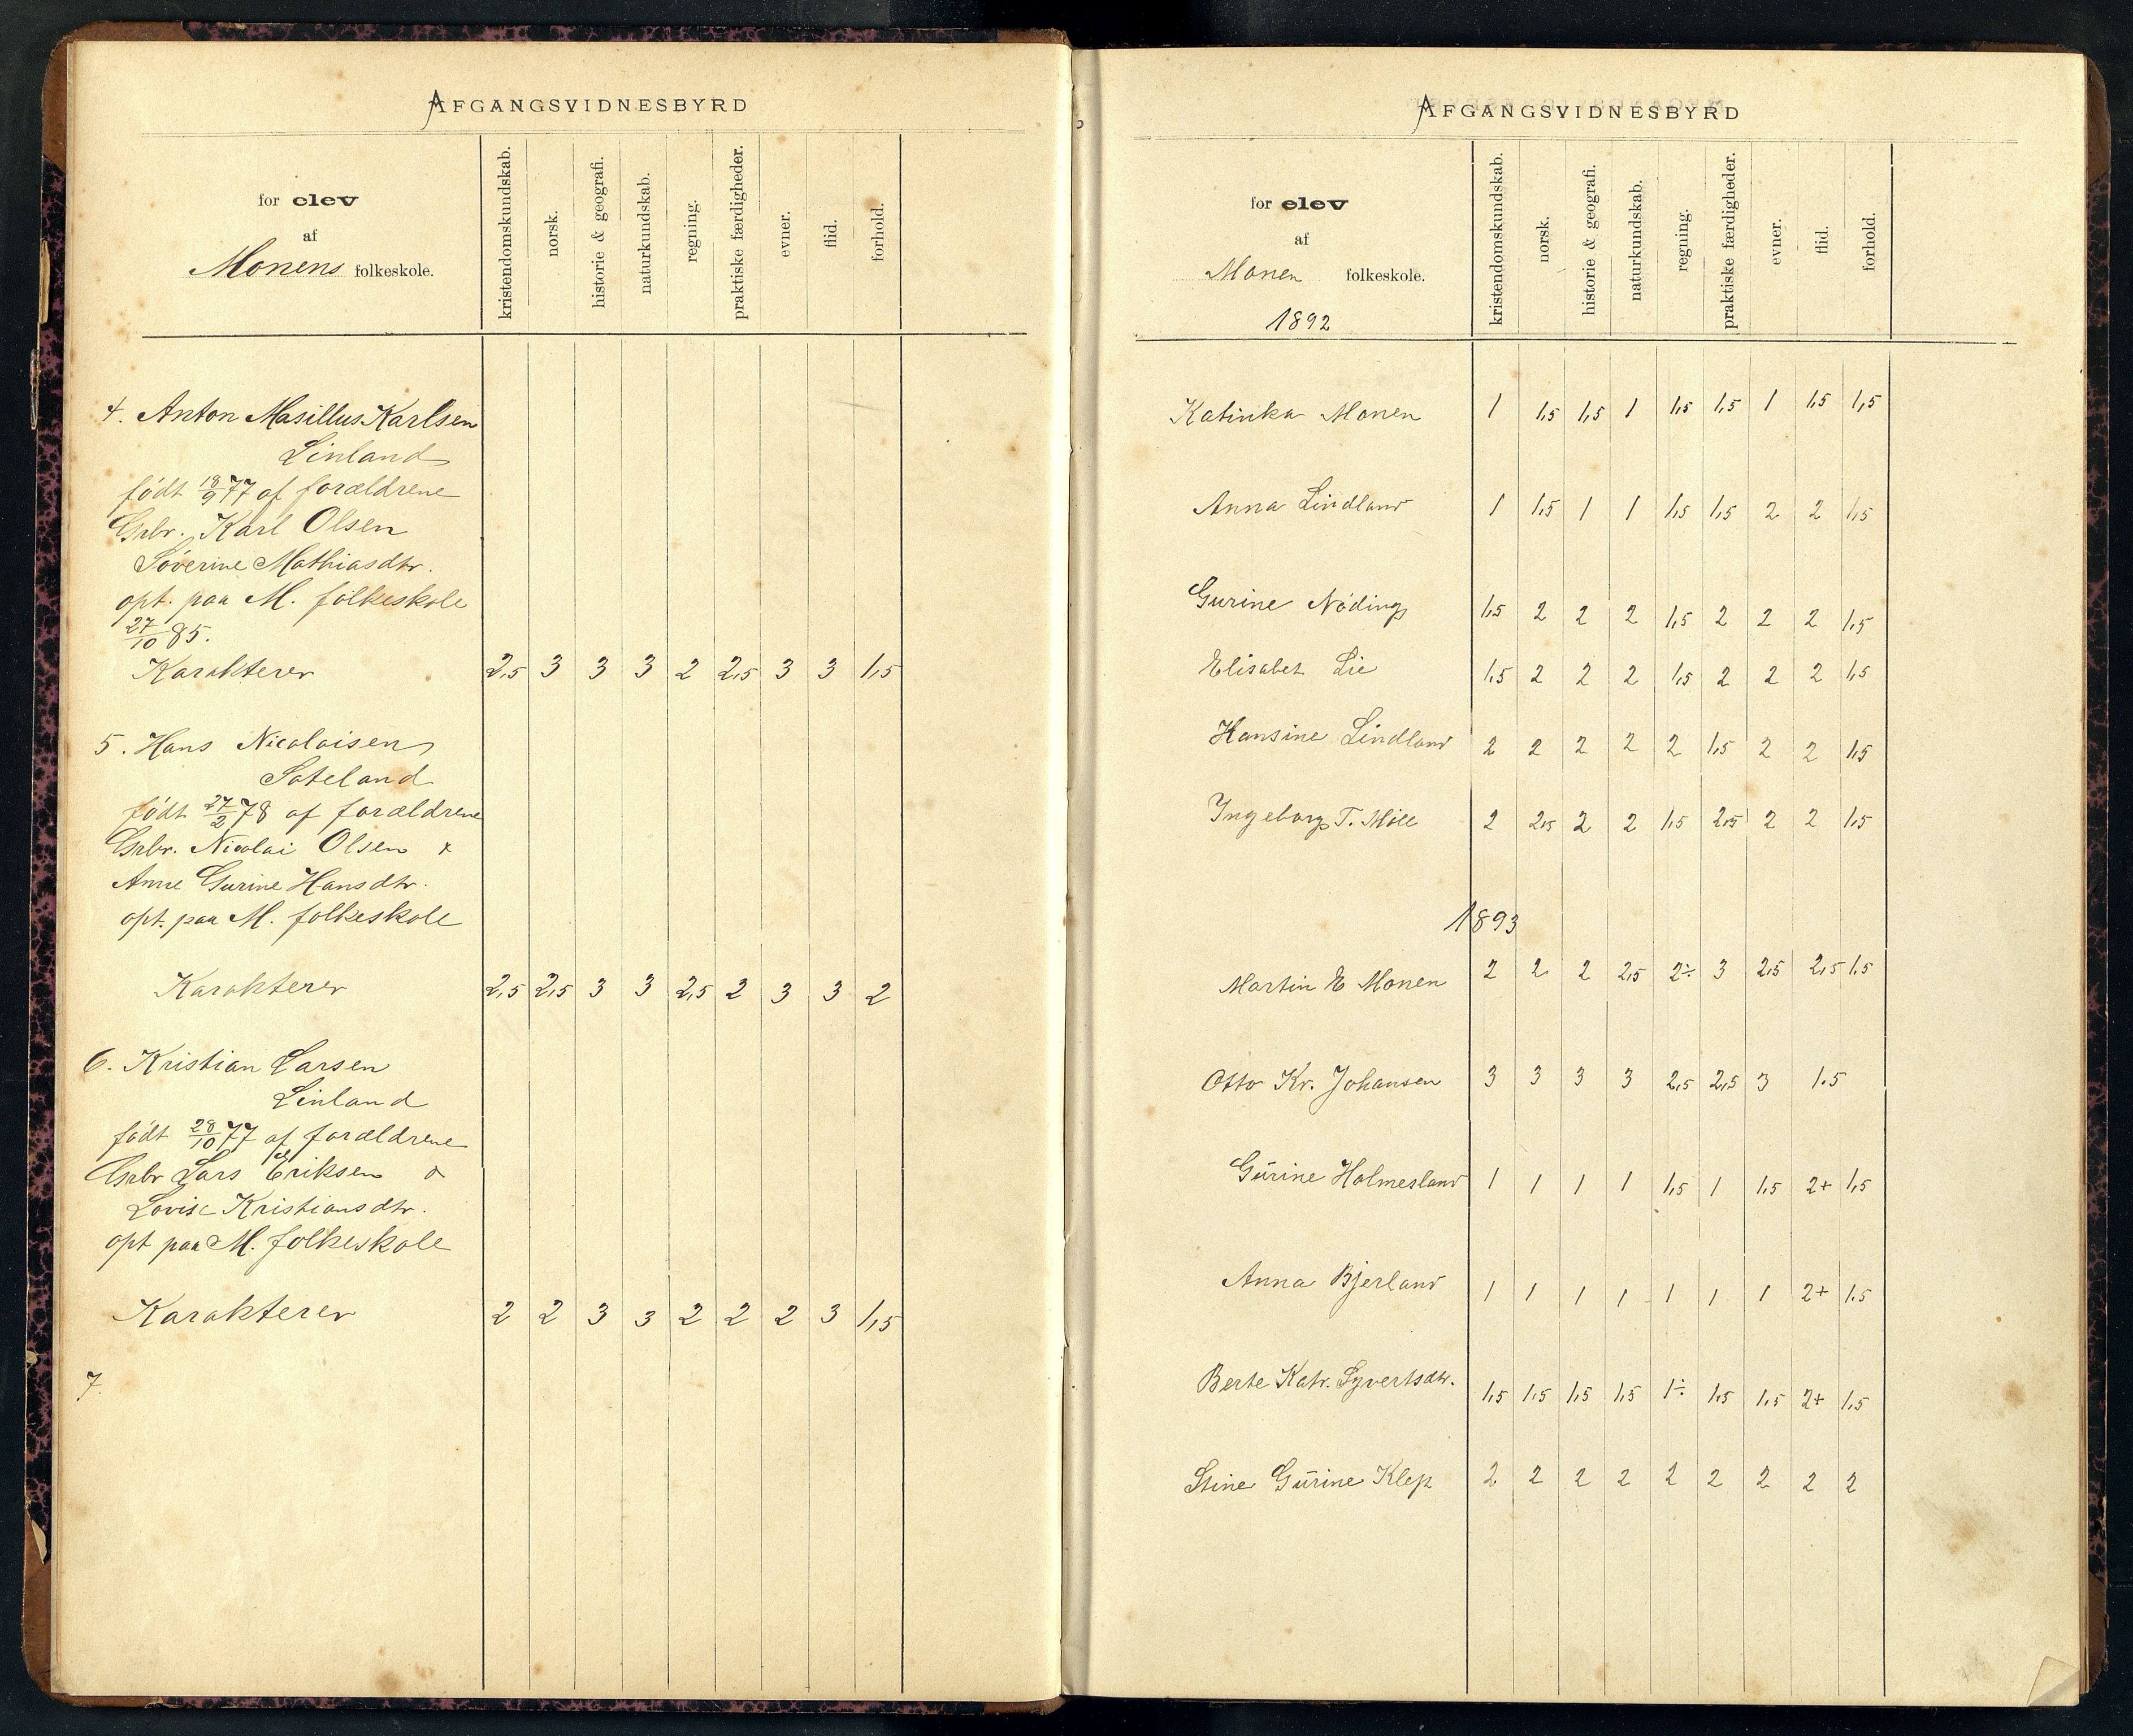 AFGANGSVIDNESBYRD
for elev
af
Monens folkeskole.
kristendomskundskab. norsk. historie & geografi. naturkundskab. regning. praktiske færdigheder. evner. flid. forhold.
4. Anton Masillus Karlsen
Linland
født 18/9 77 af forældrene
Grbr. Karl Olsen
Søverine Mathiasdtr.
opt. paa M. folkeskole
27/10 85.
Karakterer 2,5 3 3 3 2 2,5 3 3 1,5
5. Hans Nicolaisen
Sateland
født 27/2 78 af forældrene
Grbr. Nicolai Olsen &
Anne Gurine Hansdtr.
opt. paa M. folkeskole
Karakterer 2,5 2,5 3 3 2,5 2 3 3 2
6. Kristian Larsen
Linland
født 28/10 77 af forældrene
Grbr Lars Eriksen &
Lovise Kristiansdtr.
opt paa M. folkeskole
Karakterer 2 2 3 3 2 2 2 3 1,5
7.
AFGANGSVIDNESBYRD
for elev
af
Monen folkeskole.
1892
kristendomskundskab. norsk. historie & geografi. naturkundskab. regning. praktiske færdigheder. evner. flid. forhold.
Katinka Monen 1 1,5 1,5 1 1,5 1,5 1 1,5 1,5
Anna Lindland 1 1,5 1 1 1,5 1,5 2 2 1,5
Gurine Nöding 1,5 2 2 2 1,5 2 2 2 1,5
Elisabet Lie 1,5 2 2 2 1,5 2 2 2 1,5
Hansine Lindland 2 2 2 2 2 1,5 2 2 1,5
Ingeborg T. 2 2,5 2 2 1,5 2,5 2 2 1,5
1893
Martin E Monen 2 2 2 2,5 2÷ 3 2,5 2,5 1.5
Otto Kr. Johansen 3 3 3 3 2,5 2,5 3 1.5
Gŭrine Holmesland 1 1 1 1 1,5 1 1,5 2+ 1,5
Anna Bjerland 1 1 1 1 1 1 1 2+ 1.5
Berte Katr. Syvertsdtr. 1,5 1,5 1,5 1,5 1÷ 1,5 1,5 2+ 1,5
Stine Gŭrine Klep 2 2 2 2 2 2 2 2 2